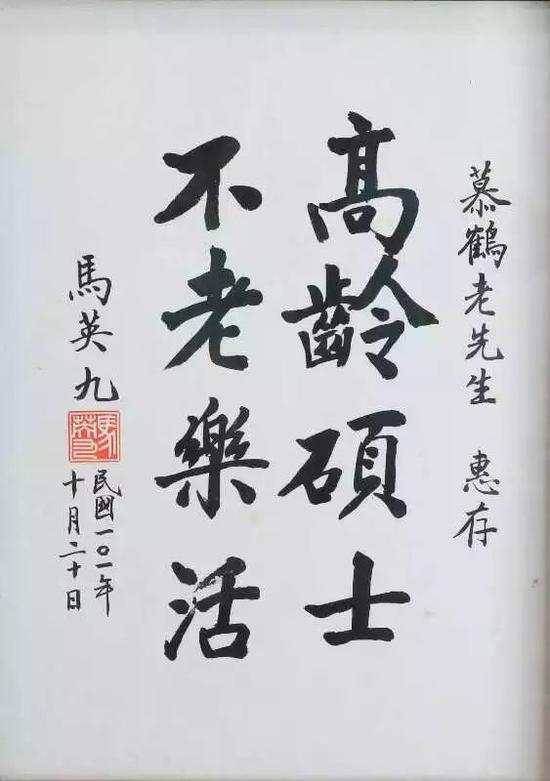 慕鶴老先生 惠存
高齡碩士
不老樂活
馬英九
馬英九
民國一〇一年
十月二十日